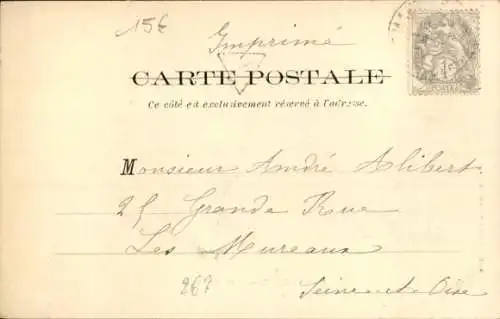 15€
Imprimé
CARTE POSTALE
Ce côté est exclusivement réservé à l'adresse.
Monsieur André Alibert.
25 Grande Rue
Les Mureaux
267
Seine-et-Oise